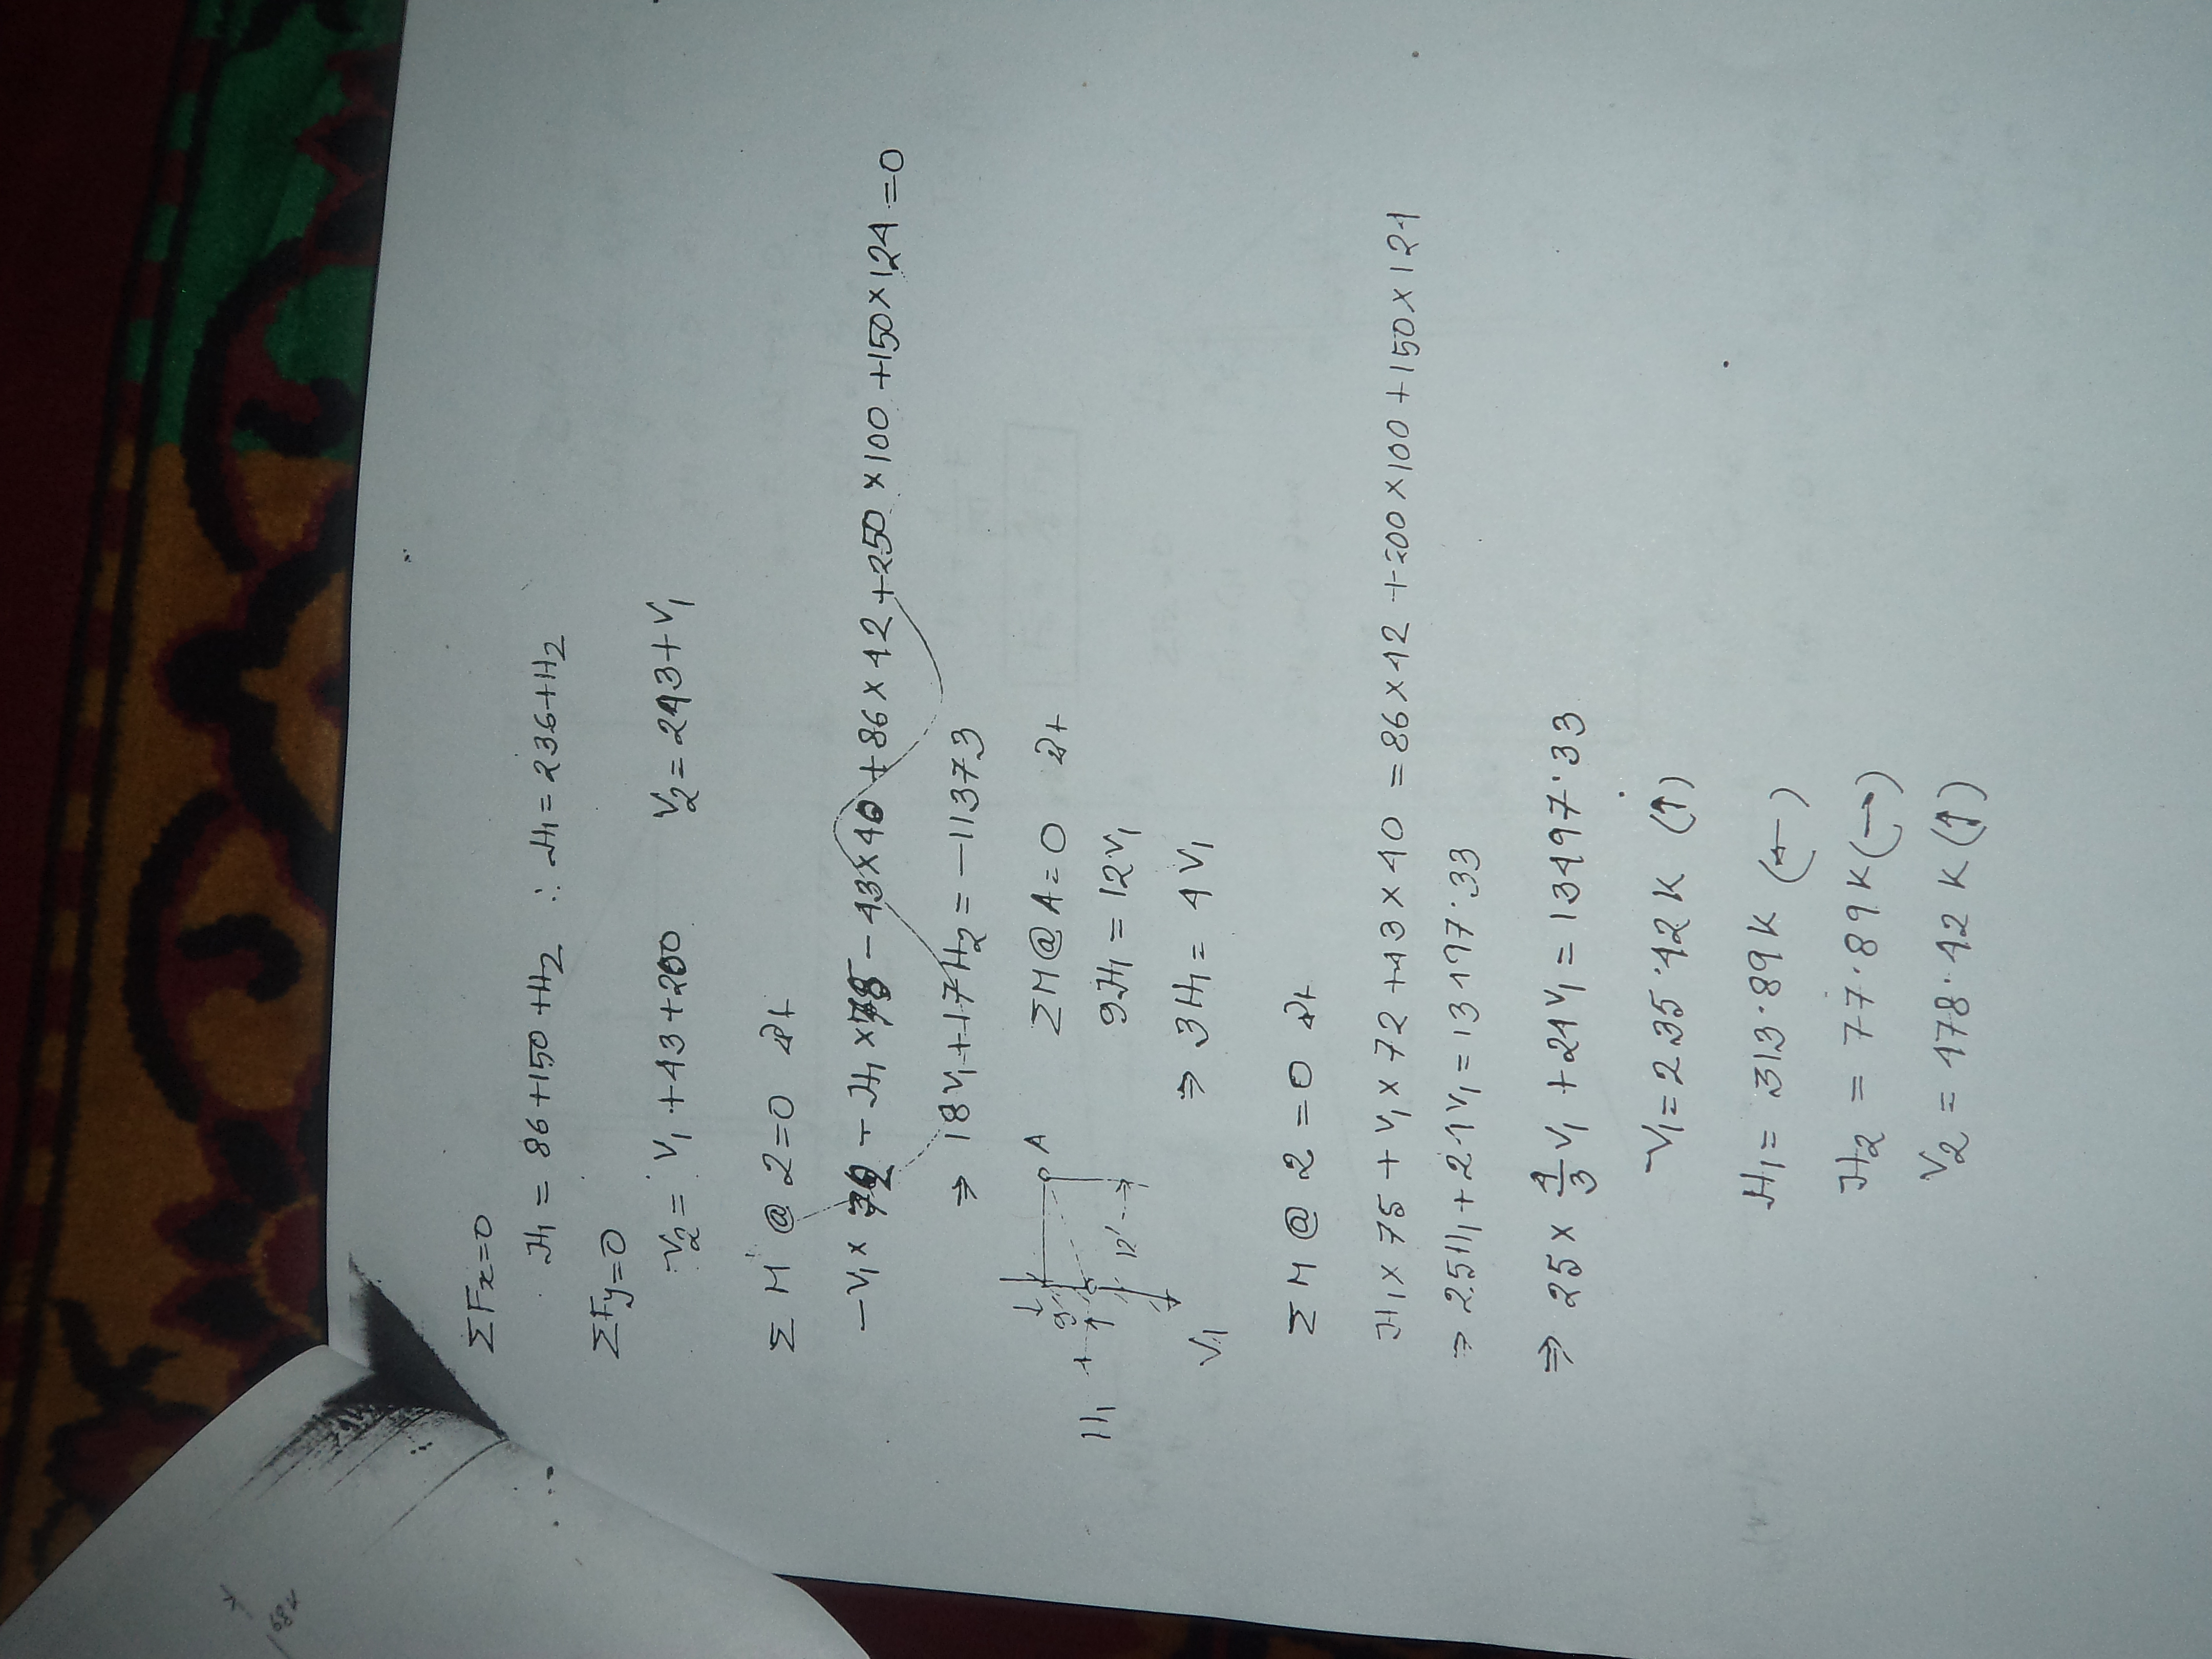 ΣFx=0
H₁ = 86+150+H₂ ∴ H₁ = 236+H₂
ΣFy=0
V₂ = V₁+43+200 V₂ = 243+V₁
ΣM @ 2=0
-43×40 +86×42 +250×100 +150×124 =0
⇒ 18V₁+17H₂ = -11373
ΣM@A=0
9H₁ = 12V₁
⇒ 3H₁ = 4V₁
A
9'
12'
H₁
V₁
ΣM @ 2 =0
H₁×75 + V₁×72 +43×40 = 86×42 +200×100 +150×124
⇒ 25H₁+24V₁ = 13497.33
⇒ 25×4/3 V₁ +24V₁ = 13497.33
V₁ = 235.42K (↑)
H₁ = 313.89K (←)
H₂ = 77.89K (→)
V₂ = 478.42K (↑)